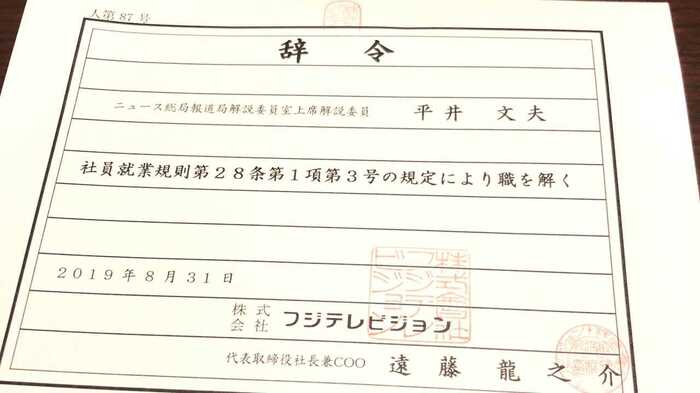 人第87号
辞令
ニュース総局報道局解説委員室上席解説委員 平井 文夫
社員就業規則第28条第1項第3号の規定により職を解く
2019年8月31日
株式会社 フジテレビジョン
代表取締役社長兼COO 遠藤 龍之介